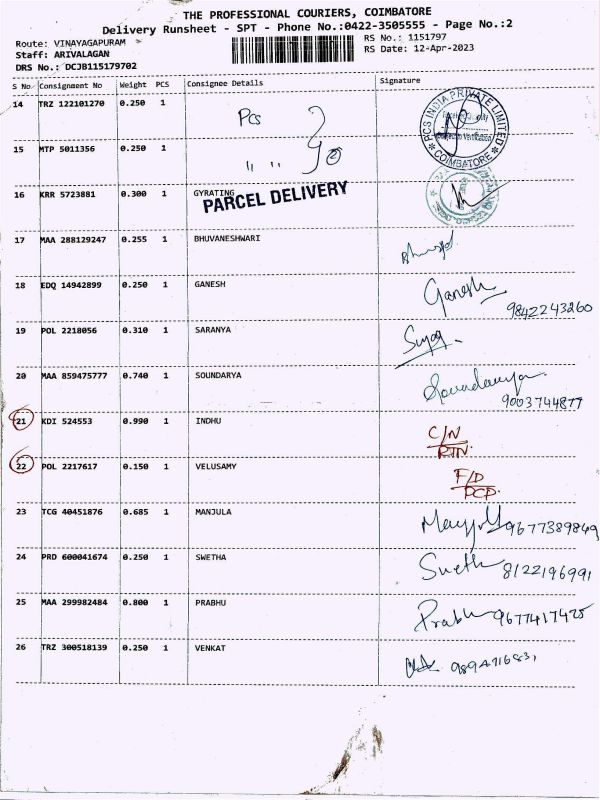 THE PROFESSIONAL COURIERS, COIMBATORE
Delivery Runsheet - SPT - Phone No.:0422-3505555 - Page No.:2
Route: VINAYAGAPURAM
RS No.: 1151797
Staff: ARIVALAGAN
RS Date: 12-Apr-2023
DRS No.: DCJB115179702
S No Consignment No Weight PCS Consignee Details Signature
14 TRZ 122101270 0.250 1 Pcs
PCS INDIA PRIVATE LIMITED
COIMBATORE
15 MTP 5011356 0.250 1 " " 2
16 KRR 5723881 0.300 1 GYRATING
PARCEL DELIVERY
17 MAA 288129247 0.255 1 BHUVANESHWARI
18 EDQ 14942899 0.250 1 GANESH Ganesh
9842243260
19 POL 2218056 0.310 1 SARANYA
20 MAA 859475777 0.740 1 SOUNDARYA Soundarya
9003744877
21 KDI 524553 0.990 1 INDHU C/N
RTN.
22 POL 2217617 0.150 1 VELUSAMY F/D
PCP.
23 TCG 40451876 0.685 1 MANJULA 9677389849
24 PRD 600041674 0.250 1 SWETHA Sweth 8122196991
25 MAA 299982484 0.800 1 PRABHU Prabhu 9677417425
26 TRZ 300518139 0.250 1 VENKAT